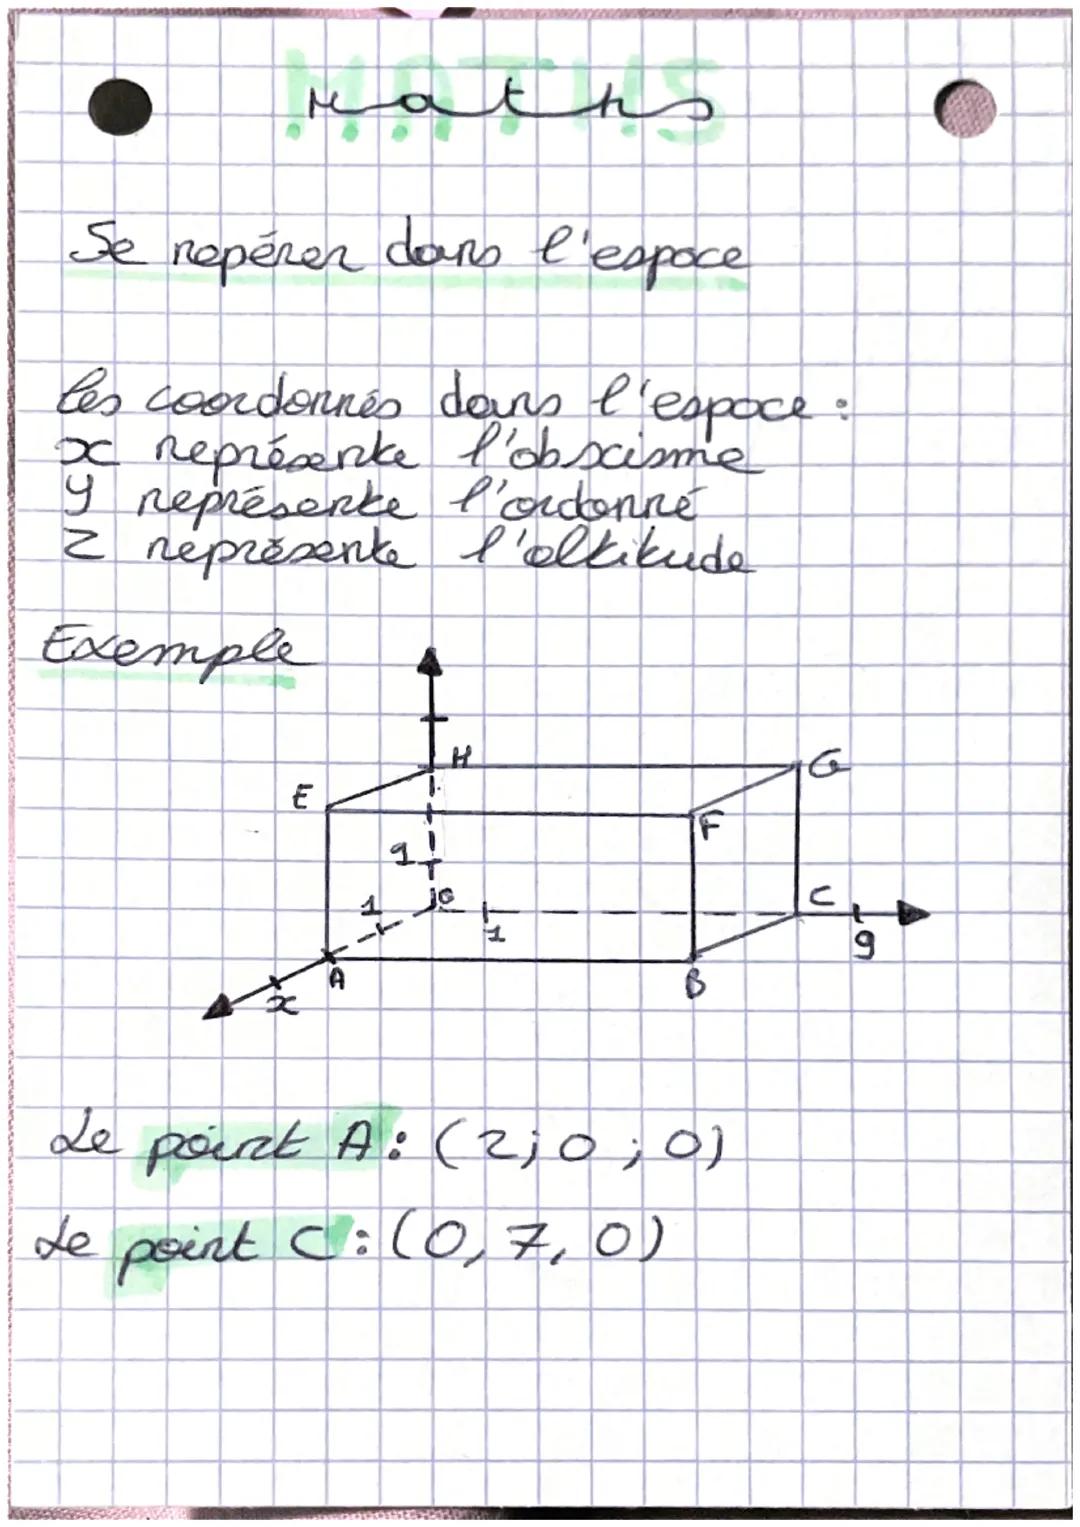 MATHS
Maths
Se repérer dans l'espace
les coordonnés dans l'espace :
x représente l'abscisme
y représente l'ordonné
z représente l'altitude
Exemple
H
G
E
F
1
1
O
C
1
9
A
B
x
Le point A : (2 ; 0 ; 0)
Le point C : (0, 7, 0)